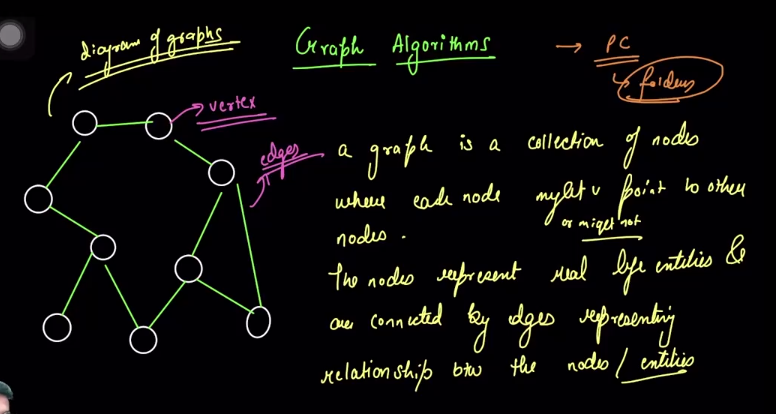 diagram of graphs
Graph Algorithms
→ PC
↳ folders
vertex
edges
a graph is a collection of nodes
where each node might point to other
or might not
nodes.
The nodes represent real life entities &
are connected by edges representing
relationship btw the nodes / entities